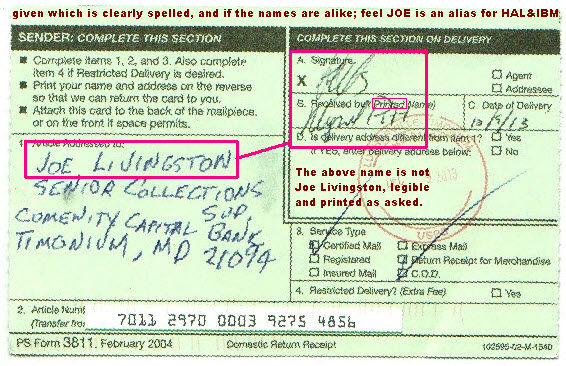 given which is clearly spelled, and if the names are alike; feel JOE is an alias for HAL&IBM
SENDER: COMPLETE THIS SECTION
Complete items 1, 2, and 3. Also complete
item 4 if Restricted Delivery is desired.
Print your name and address on the reverse
so that we can return the card to you.
Attach this card to the back of the mailpiece,
or on the front if space permits.
1. Article Addressed to:
JOE LIVINGSTON
SENIOR COLLECTIONS SUP,
COMENITY CAPITAL BANK
TIMONIUM, MD 21094
COMPLETE THIS SECTION ON DELIVERY
A. Signature
X
Agent
Addressee
B. Received by (Printed Name)
C. Date of Delivery
D. Is delivery address different from item 1? Yes
If YES, enter delivery address below: No
The above name is not
Joe Livingston, legible
and printed as asked.
USPS
3. Service Type
Certified Mail Express Mail
Registered Return Receipt for Merchandise
Insured Mail C.O.D.
4. Restricted Delivery? (Extra Fee) Yes
2. Article Num
(Transfer fro
7011 2970 0003 9275 4856
PS Form 3811, February 2004 Domestic Return Receipt 102595-02-M-1540